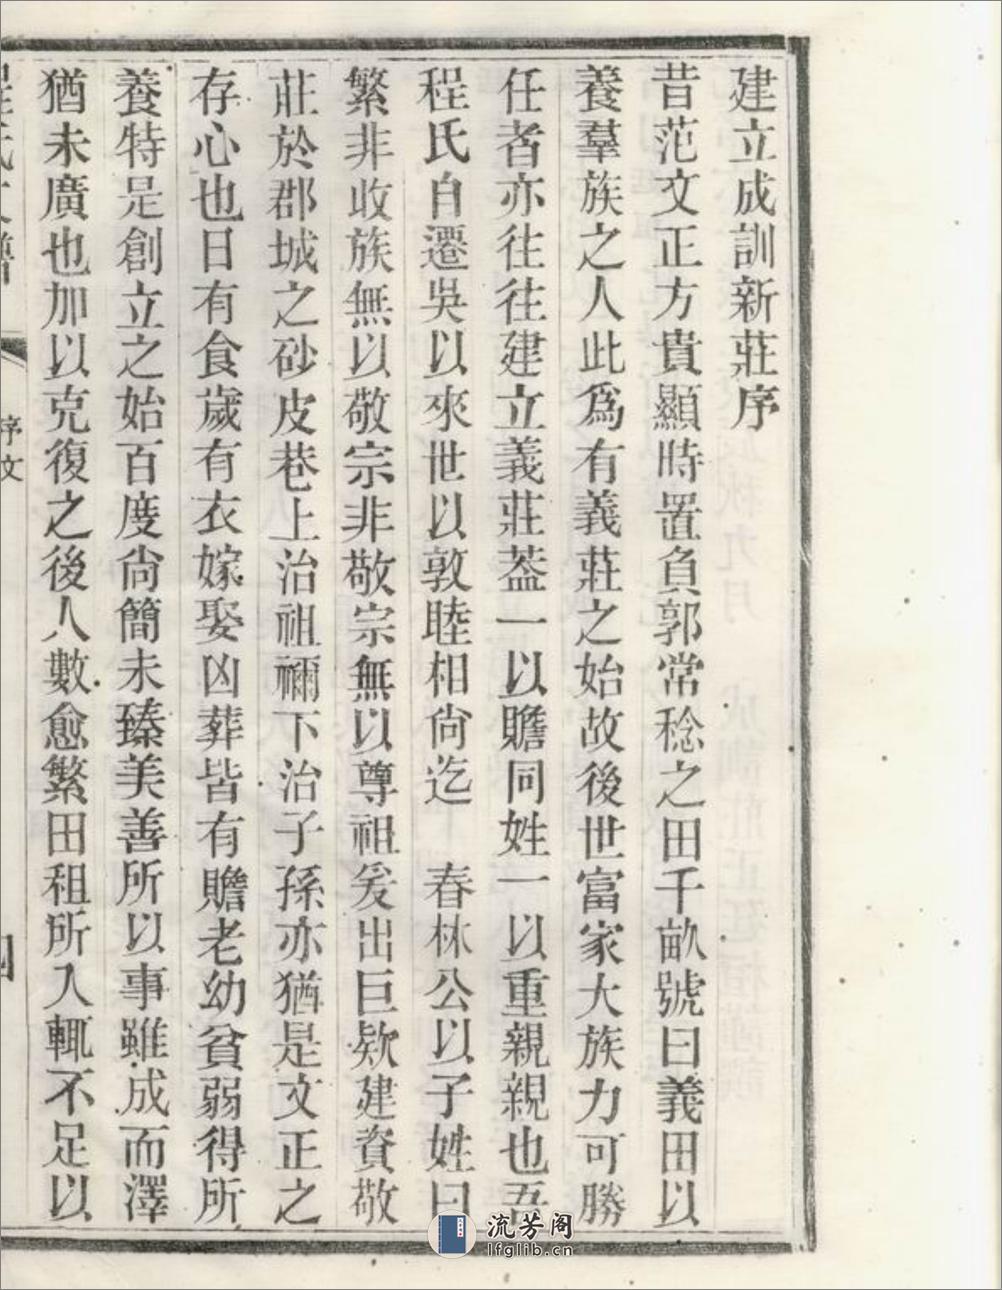 建立成訓新莊序
昔范文正方貴顯時置負郭常稔之田千畝號曰義田以
養羣族之人此爲有義莊之始故後世富家大族力可勝
任者亦往往建立義莊葢一以贍同姓一以重親親也吾
程氏自遷吳以來世以敦睦相尙迄　春林公以子姓日
繁非收族無以敬宗非敬宗無以尊祖爰出巨欵建資敬
莊於郡城之砂皮巷上治祖禰下治子孫亦猶是文正之
存心也日有食歲有衣嫁娶凶葬皆有贍老幼貧弱得所
養特是創立之始百度尙簡未臻美善所以事雖成而澤
猶未廣也加以克復之後人數愈繁田租所入輒不足以
序文
流芳阁
lfglib.cn